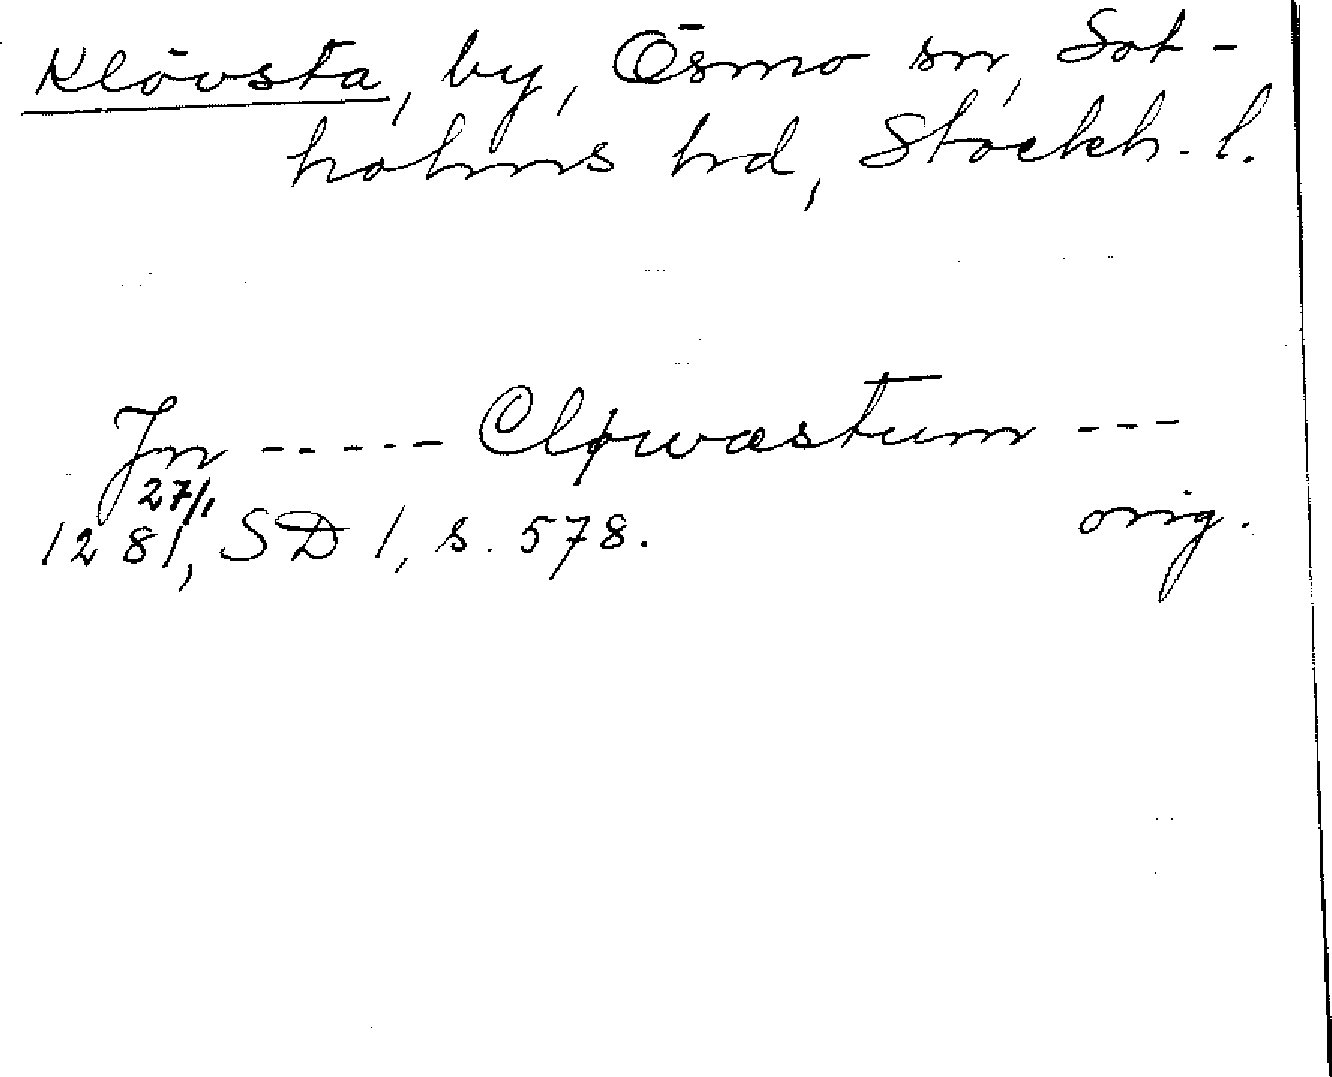 Klövsta, by, Ösmo sn, Sot-
holms hd, Stockh. l.
In ----- Cløwastum ---
27/1
1281, SD 1, s. 578. orig.